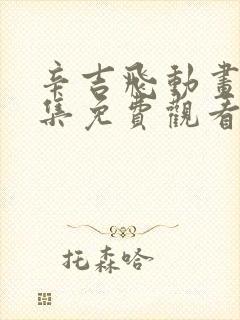 辛吉飛動畫
集免費觀看
托森哈